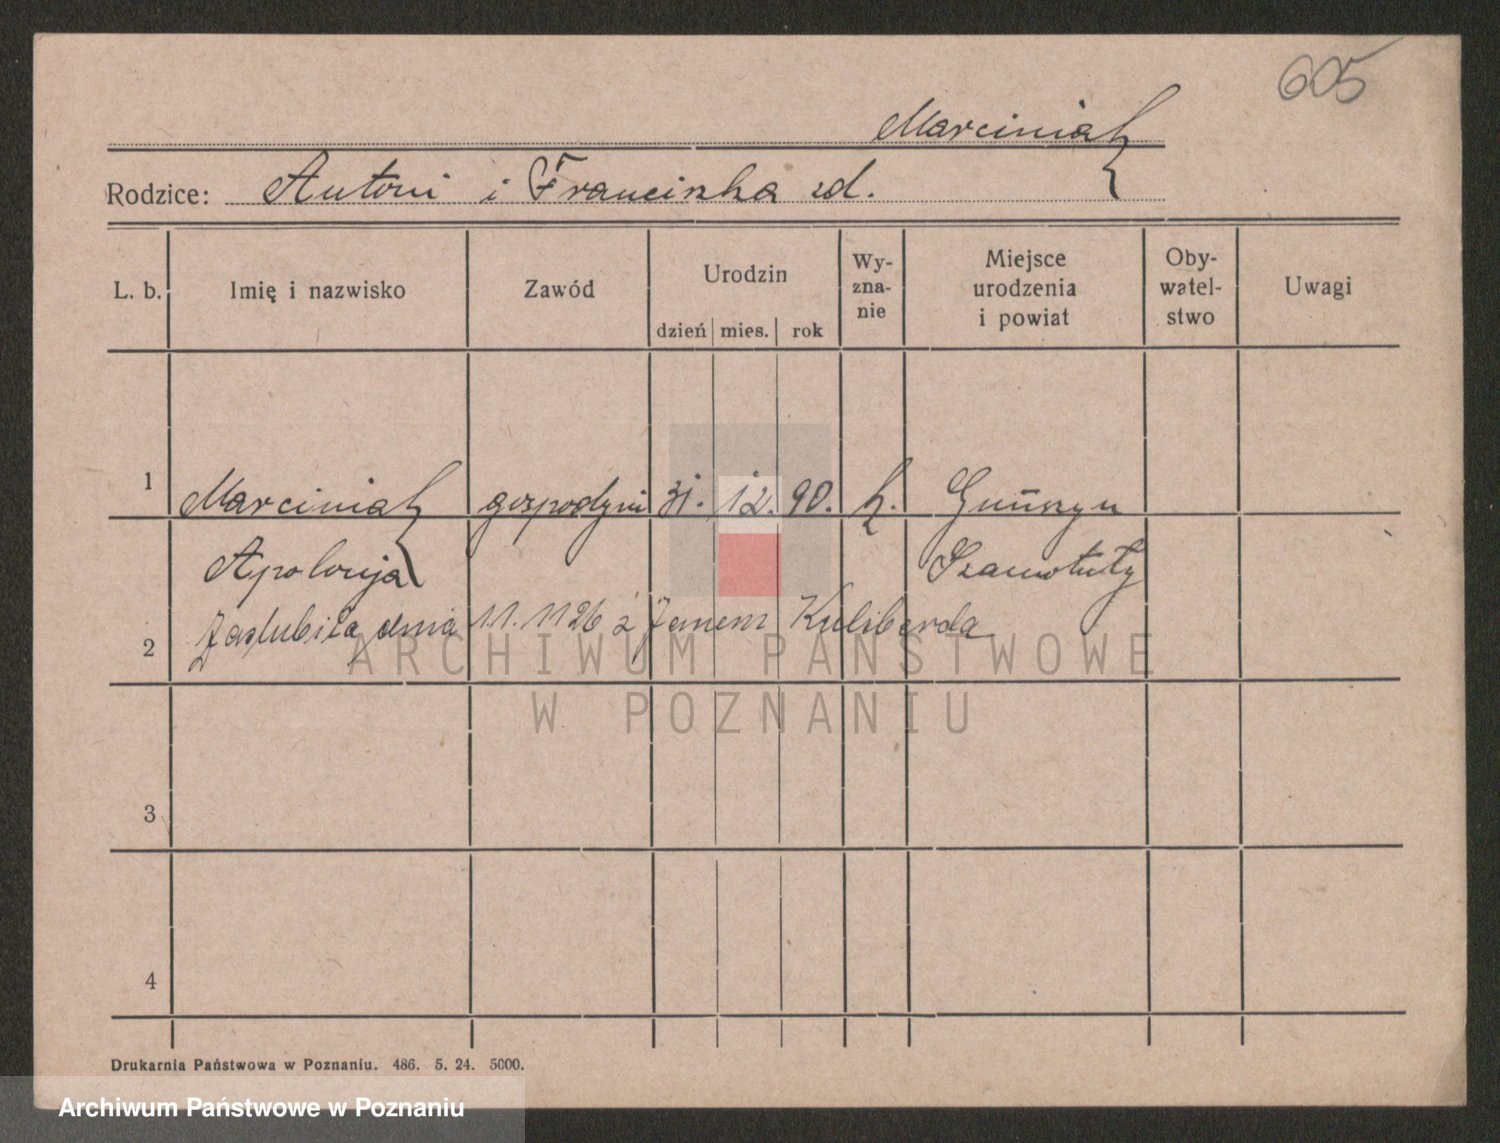 605
Marciniak
Rodzice: Antoni i Franciszka zd.
L. b. Imię i nazwisko Zawód Urodzin dzień mies. rok Wy-zna-nie Miejsce urodzenia i powiat Oby-watel-stwo Uwagi
1 Marciniak gospodyni 31. 12. 90. k.
Apolonja Szamotuły
2 Zaślubiła dnia 11. 11 26 z Janem Kuliberda
ARCHIWUM PAŃSTWOWE
W POZNANIU
3
4
Drukarnia Państwowa w Poznaniu. 486. 5. 24. 5000.
Archiwum Państwowe w Poznaniu